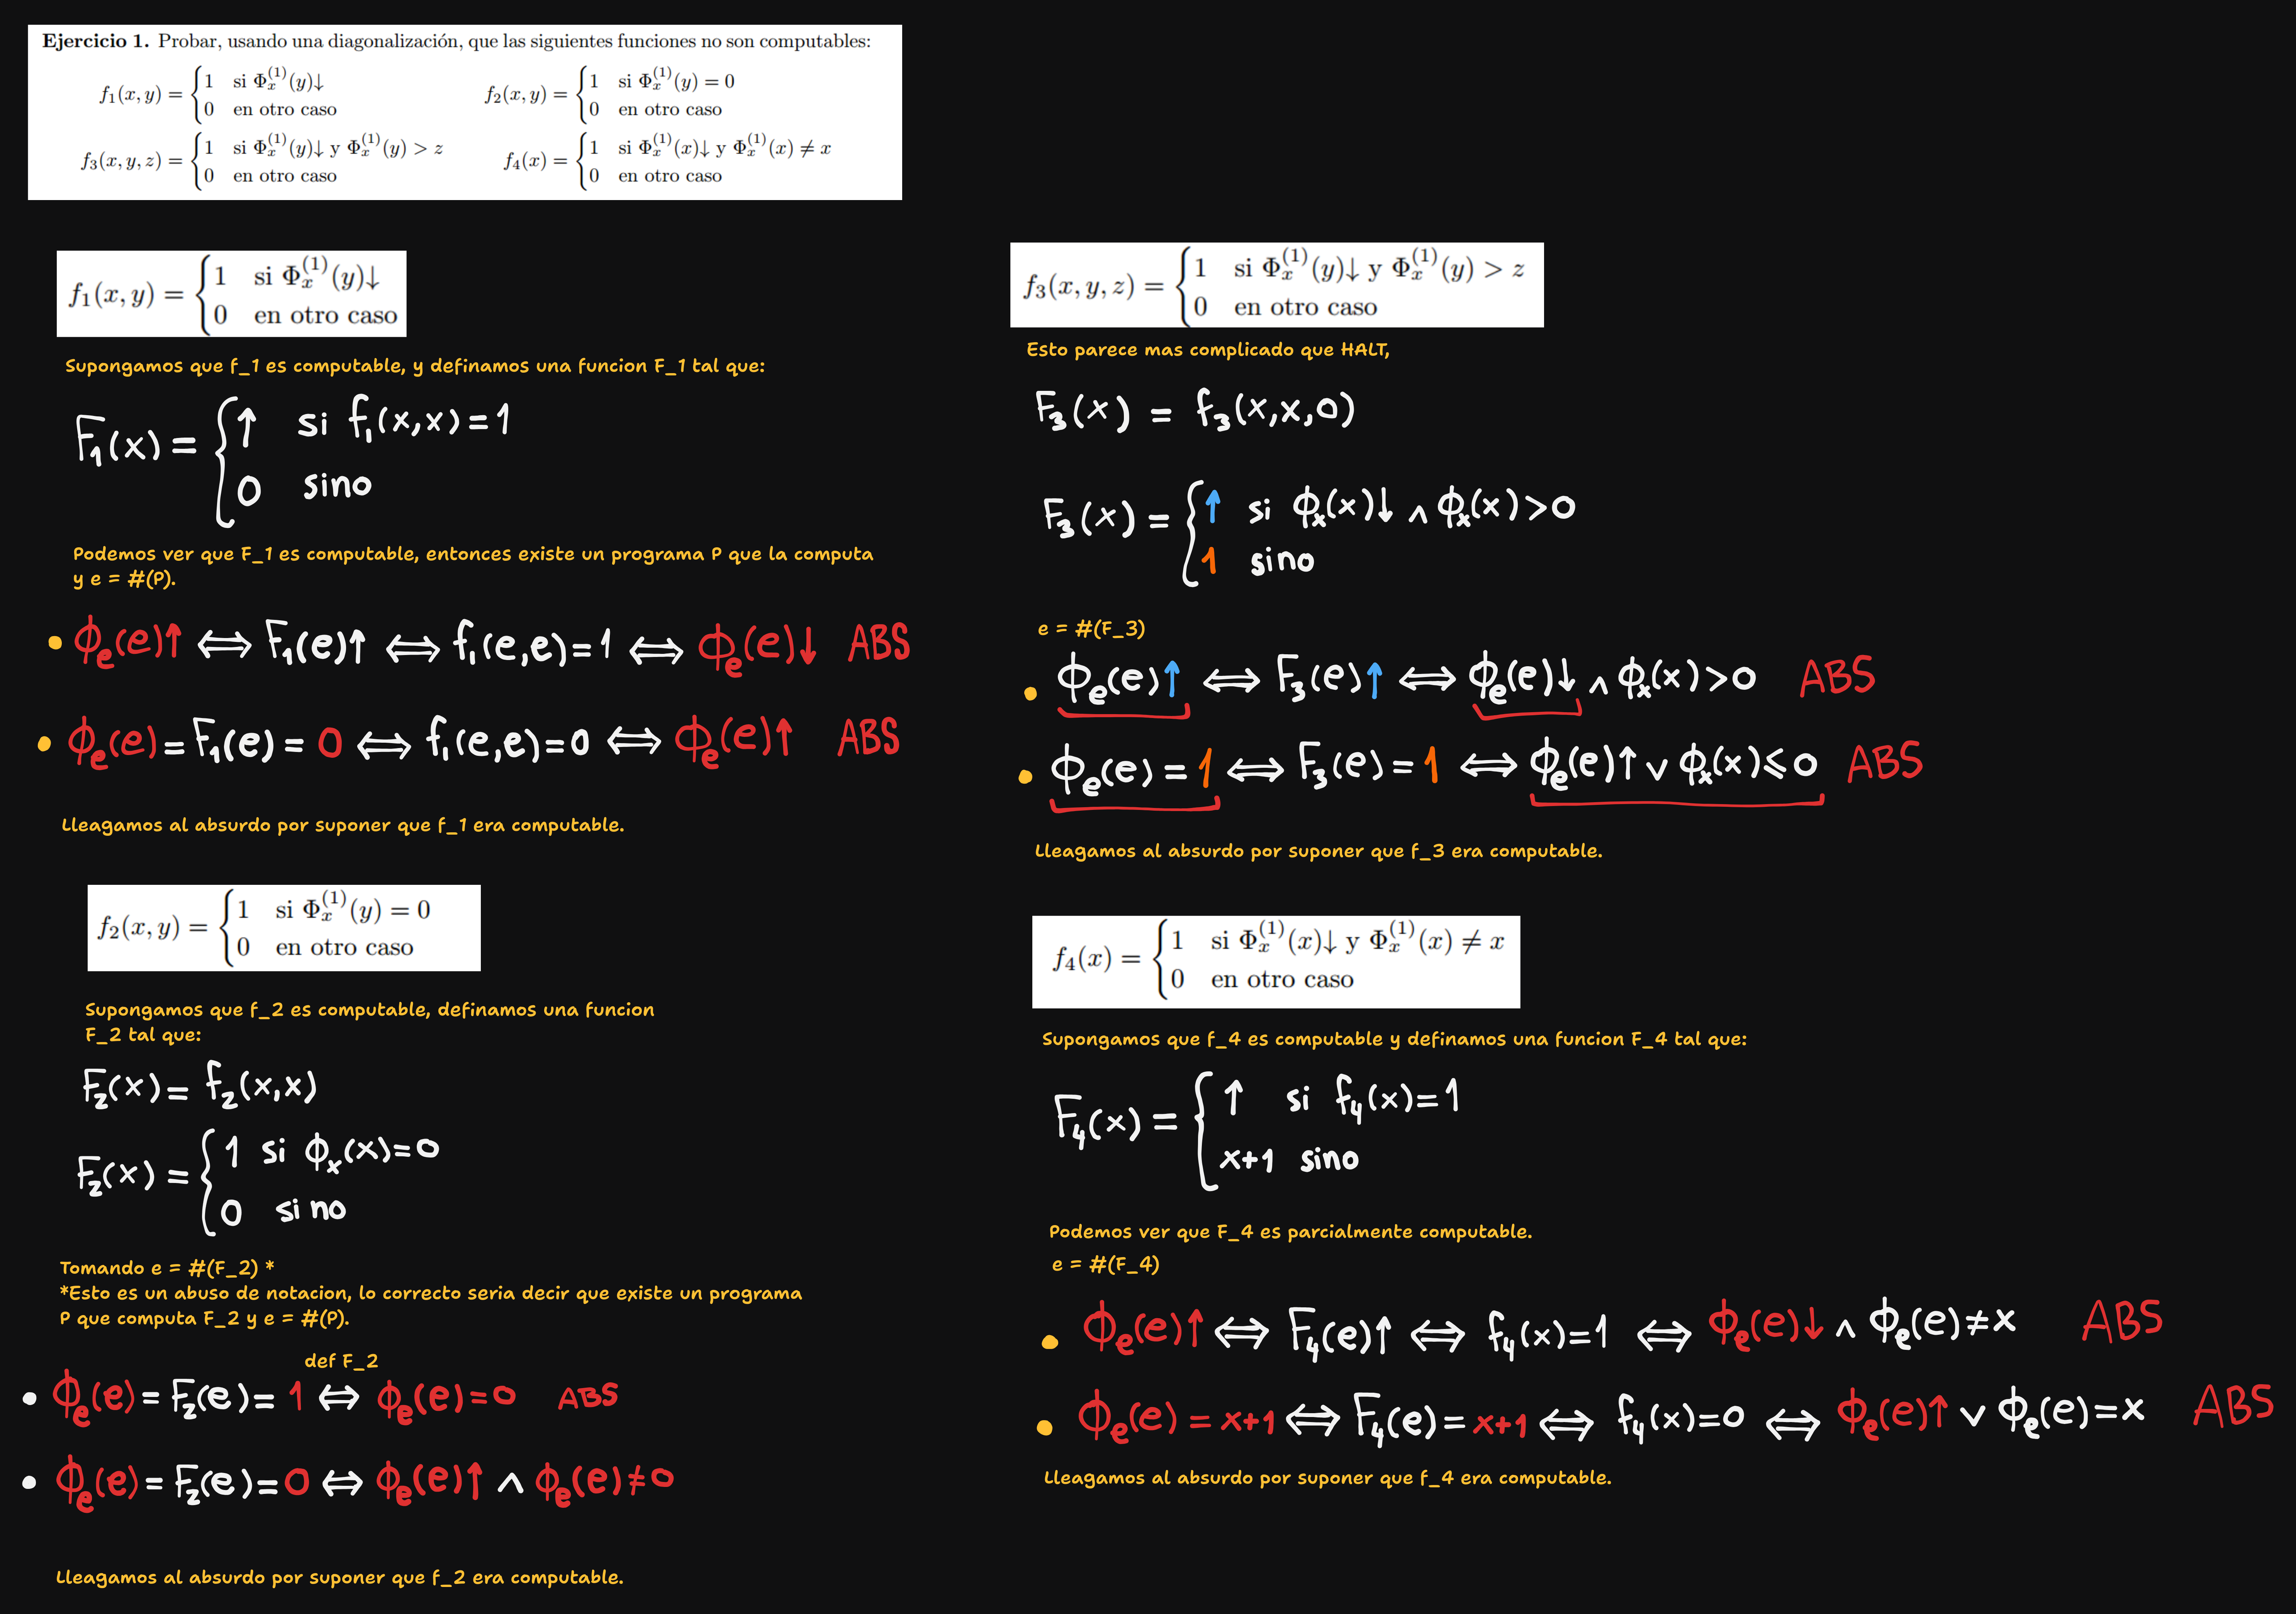 Ejercicio 1. Probar, usando una diagonalización, que las siguientes funciones no son computables:
f₁(x, y) = { 1 si Φₓ⁽¹⁾(y)↓
0 en otro caso
f₂(x, y) = { 1 si Φₓ⁽¹⁾(y) = 0
0 en otro caso
f₃(x, y, z) = { 1 si Φₓ⁽¹⁾(y)↓ y Φₓ⁽¹⁾(y) > z
0 en otro caso
f₄(x) = { 1 si Φₓ⁽¹⁾(x)↓ y Φₓ⁽¹⁾(x) ≠ x
0 en otro caso
f₁(x, y) = { 1 si Φₓ⁽¹⁾(y)↓
0 en otro caso
Supongamos que f_1 es computable, y definamos una funcion F_1 tal que:
F₁(x) = { ↑ si f₁(x,x)=1
0 sino
Podemos ver que F_1 es computable, entonces existe un programa P que la computa
y e = #(P).
• Φₑ(e)↑ ⟺ F₁(e)↑ ⟺ f₁(e,e)=1 ⟺ Φₑ(e)↓ ABS
• Φₑ(e)=F₁(e)=0 ⟺ f₁(e,e)=0 ⟺ Φₑ(e)↑ ABS
Lleagamos al absurdo por suponer que f_1 era computable.
f₂(x, y) = { 1 si Φₓ⁽¹⁾(y) = 0
0 en otro caso
Supongamos que f_2 es computable, definamos una funcion
F_2 tal que:
F₂(x) = f₂(x,x)
F₂(x) = { 1 si Φₓ(x)=0
0 sino
Tomando e = #(F_2) *
*Esto es un abuso de notacion, lo correcto seria decir que existe un programa
P que computa F_2 y e = #(P).
def F_2
• Φₑ(e)=F₂(e)=1 ⟺ Φₑ(e)=0 ABS
• Φₑ(e)=F₂(e)=0 ⟺ Φₑ(e)↑ ∧ Φₑ(e)≠0
Lleagamos al absurdo por suponer que f_2 era computable.
f₃(x, y, z) = { 1 si Φₓ⁽¹⁾(y)↓ y Φₓ⁽¹⁾(y) > z
0 en otro caso
Esto parece mas complicado que HALT,
F₃(x) = f₃(x,x,0)
F₃(x) = { ↑ si Φₓ(x)↓ ∧ Φₓ(x)>0
1 sino
e = #(F_3)
• Φₑ(e)↑ ⟺ F₃(e)↑ ⟺ Φₑ(e)↓ ∧ Φₓ(x)>0 ABS
• Φₑ(e)=1 ⟺ F₃(e)=1 ⟺ Φₑ(e)↑ ∨ Φₓ(x)≤0 ABS
Lleagamos al absurdo por suponer que f_3 era computable.
f₄(x) = { 1 si Φₓ⁽¹⁾(x)↓ y Φₓ⁽¹⁾(x) ≠ x
0 en otro caso
Supongamos que f_4 es computable y definamos una funcion F_4 tal que:
F₄(x) = { ↑ si f₄(x)=1
x+1 sino
Podemos ver que F_4 es parcialmente computable.
e = #(F_4)
• Φₑ(e)↑ ⟺ F₄(e)↑ ⟺ f₄(x)=1 ⟺ Φₑ(e)↓ ∧ Φₑ(e)≠x ABS
• Φₑ(e)=x+1 ⟺ F₄(e)=x+1 ⟺ f₄(x)=0 ⟺ Φₑ(e)↑ ∨ Φₑ(e)=x ABS
Lleagamos al absurdo por suponer que f_4 era computable.